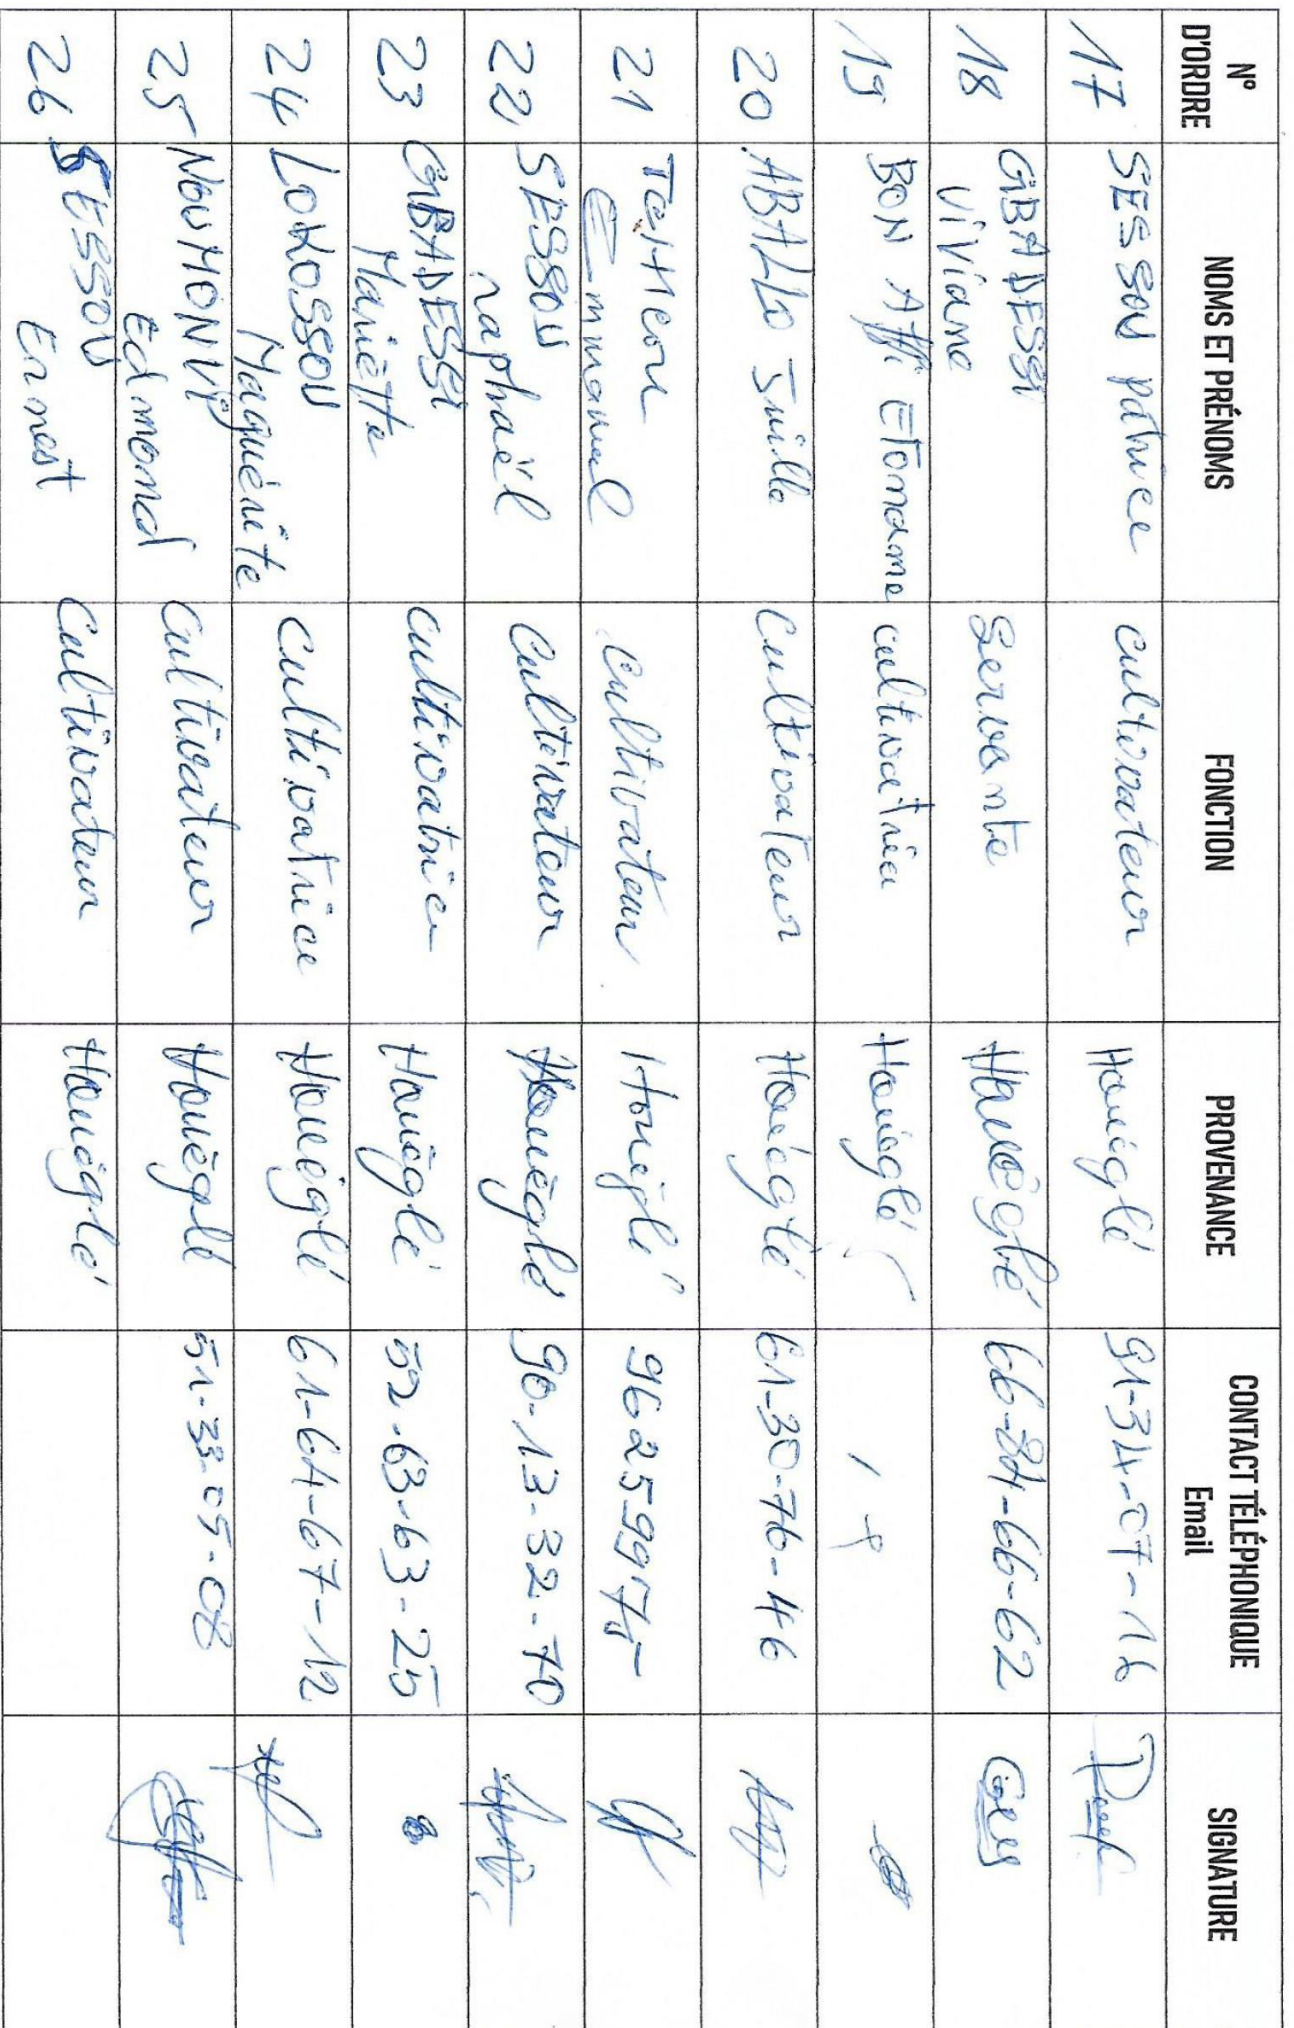 N° D'ORDRE NOMS ET PRÉNOMS FONCTION PROVENANCE CONTACT TÉLÉPHONIQUE Email SIGNATURE
17 SESSOU patrice cultivateur Houéglé 91-34-07-16
18 GBADESSI Viviane Servante Houéglé 66-84-66-62
19 BON Affi Etonam cultivatrice Houéglé
20 ABALLO Cultivateur Houéglé 61-30-76-46
21 Emmanuel cultivateur Houéglé 96259975
22 SESSOU raphaël Cultivateur Houèglé 90-13-32-70
23 GBADESSI Mariette cultivatrice Houègle 52-63-63-25
24 LOKOSSOU Maguérite cultivatrice Houéglé 61-64-67-12
25 Edmond cultivateur Houèglé 51-33-05-08
26 SESSOU Ernest Cultivateur Houéglé